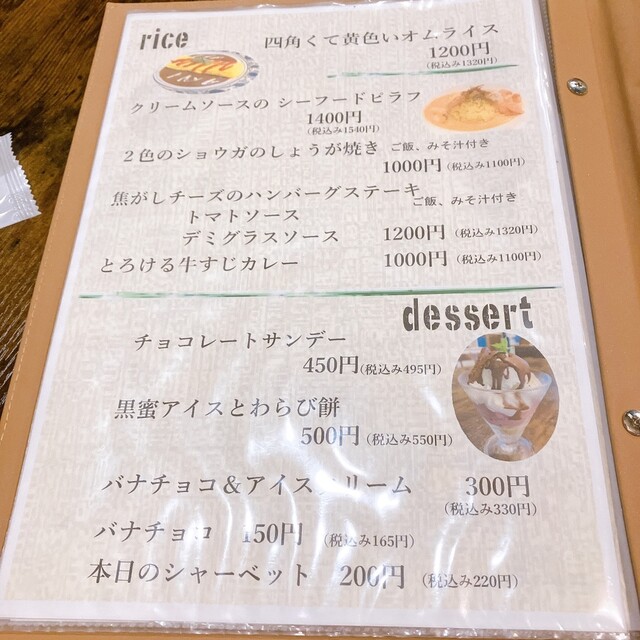 rice
四角くて黄色いオムライス
1200円
(税込み1320円)
クリームソースの シーフードピラフ
1400円
(税込み1540円)
２色のショウガのしょうが焼き ご飯、みそ汁付き
1000円(税込み1100円)
焦がしチーズのハンバーグステーキ
ご飯、みそ汁付き
トマトソース
デミグラスソース 1200円(税込み1320円)
とろける牛すじカレー 1000円(税込み1100円)
dessert
チョコレートサンデー
450円(税込み495円)
黒蜜アイスとわらび餅
500円(税込み550円)
バナチョコ＆アイスクリーム 300円
(税込み330円)
バナチョコ 150円 (税込み165円)
本日のシャーベット 200円 (税込み220円)